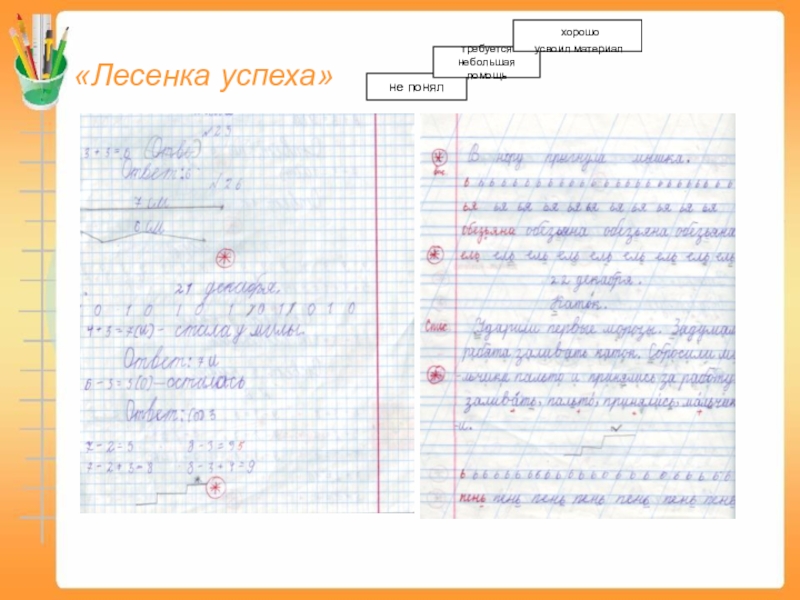 «Лесенка успеха»
хорошо
усвоил материал
требуется
небольшая
помощь
не понял
№25
3+3=6 (Отв6)
Ответ: 6
№26
7 см
6 см
21 декабря.
0 1 0 1 0 1 10 11 0 1 0
4+3=7(и) - стала у милы.
Ответ: 7 и
6-3=3(0) - осталась
Ответ:
7-2+3=8 8-3+4=9
В нору прыгнула мышка.
ь ь ь ь ь ь ь ь ь ь ь ь ь ь ь ь ь ь ь ь ь ь ь
ья ья ья ья ья ья ья ья ья ья ья
обезьяна обезьяна обезьяна обезьяна
ель ель ель ель ель ель ель ель ель
22 декабря.
Каток.
Спис Ударили первые морозы. Задумал
рабята заливать каток. Сбросили ма
-льчики пальто и принялись за работу.
заливать, пальто, принялись, мальчик
-и.
ь ь ь ь ь ь ь ь ь ь ь ь ь ь ь ь ь ь ь ь ь
пень пень пень пень пень пень пень